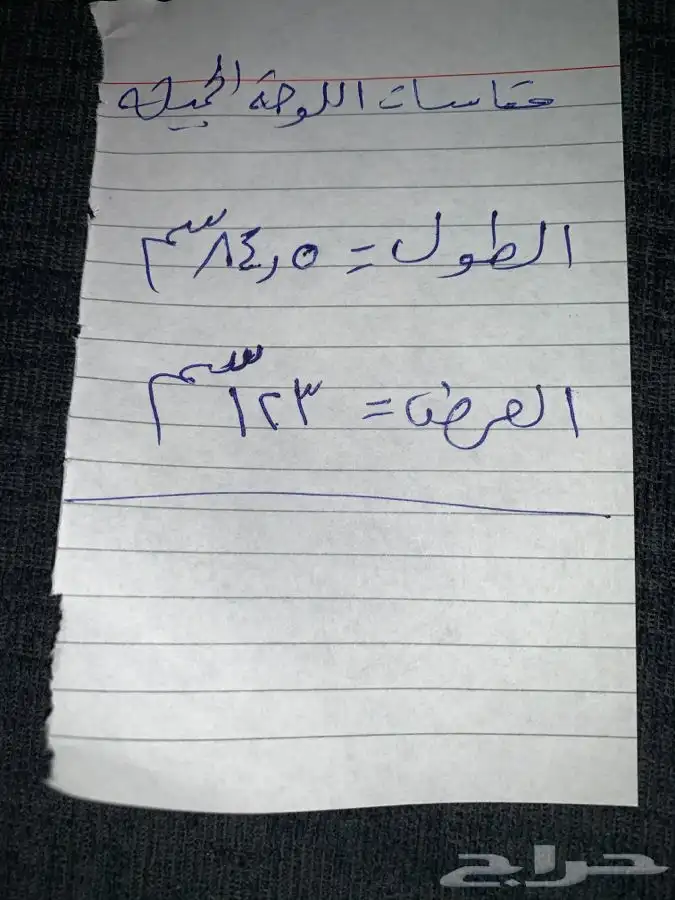 مقاسات اللوحة الجميلة
الطول = ٨٤,٥ سم
العرض = ١٢٣ سم
حراج